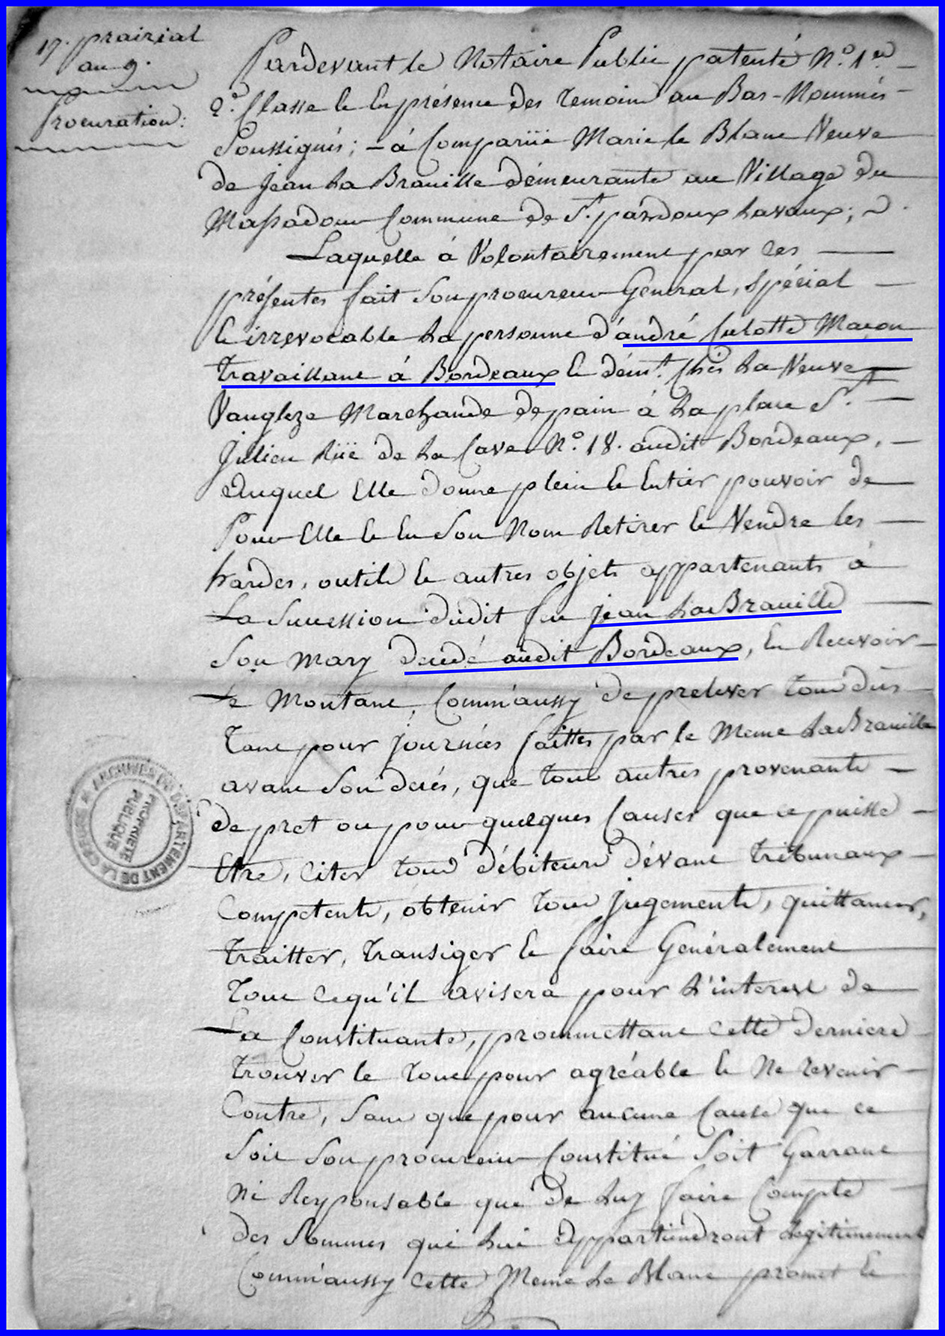 17. prairial
an 9.
Procuration:
Pardevant le Notaire Public patenté N.o 1er
2.e Classe et En présence des temoins au Bas-Nommés
Soussignés; - à Comparüe Marie le Blanc Veuve
de Jean La Braville démeurante au Village du
Massadour Commune de St. pardoux Lavaux;
Laquelle à Volontairement par ces
présentes fait Son procureur General, Spécial
et irrevocable La personne d'andré Culotte Maçon
travaillant à Bordeaux et dem.t chés La Veuve
Vaugleze Marchande de pain à La place St.
Julien Rüe de La Cave N.o 18. audit Bordeaux,
Auquel Elle donne plein et Entier pouvoir de
Pour Elle et En Son Nom Retirer et Vendre les
hardes, outils et autres objets appartenants à
La Succession dudit feu jean La Braville
Son mary décedé audit Bordeaux, En Recevoir
Le Montant, Comm'aussy de prelever tous dus
tant pour journées faittes par le Meme La Braville
avant Son decés, que tous autres provenants
de pret ou pour quelques Causes que ce puisse
Etre, citer tous débiteurs dévant tribunaux
Competents, obtenir tous jugements, quittances,
traitter, transiger et faire Généralement
tout ce qu'il avisera pour L'interest de
La Constituante, prommettant cette derniere
trouver le tout pour agréable et Ne revenir
Contre, Sans que pour aucune Cause que ce
Soit Son procureur Constitué Soit Garrant
Ni Responsable que de Luy faire Compte
des Sommes qui Lui appartiendront Legitimement
Comm'aussy cette Meme Le Blanc promet et
ARCHIVES DU DÉPARTEMENT DE LA CREUSE
PROPRIÉTÉ
PUBLIQUE